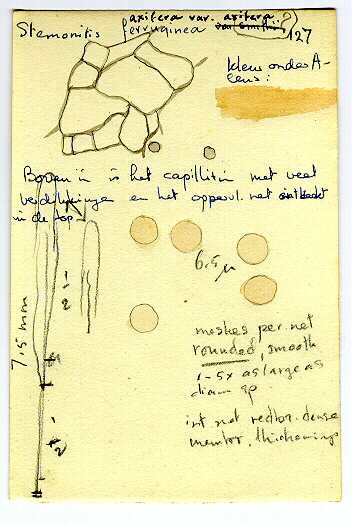 axifera var. axifera ?
Stemonitis ferruginea var smithii 127
kleur onder A-
lens:
Bovenin is het capillitium met veel
verdikkingen en het oppervl. net ontbreekt
in de top.
6.5 µ
7.5 mm
meshes per. net
rounded, smooth
1-5x as large as
diam sp
int net rather dense
membr. thickenings